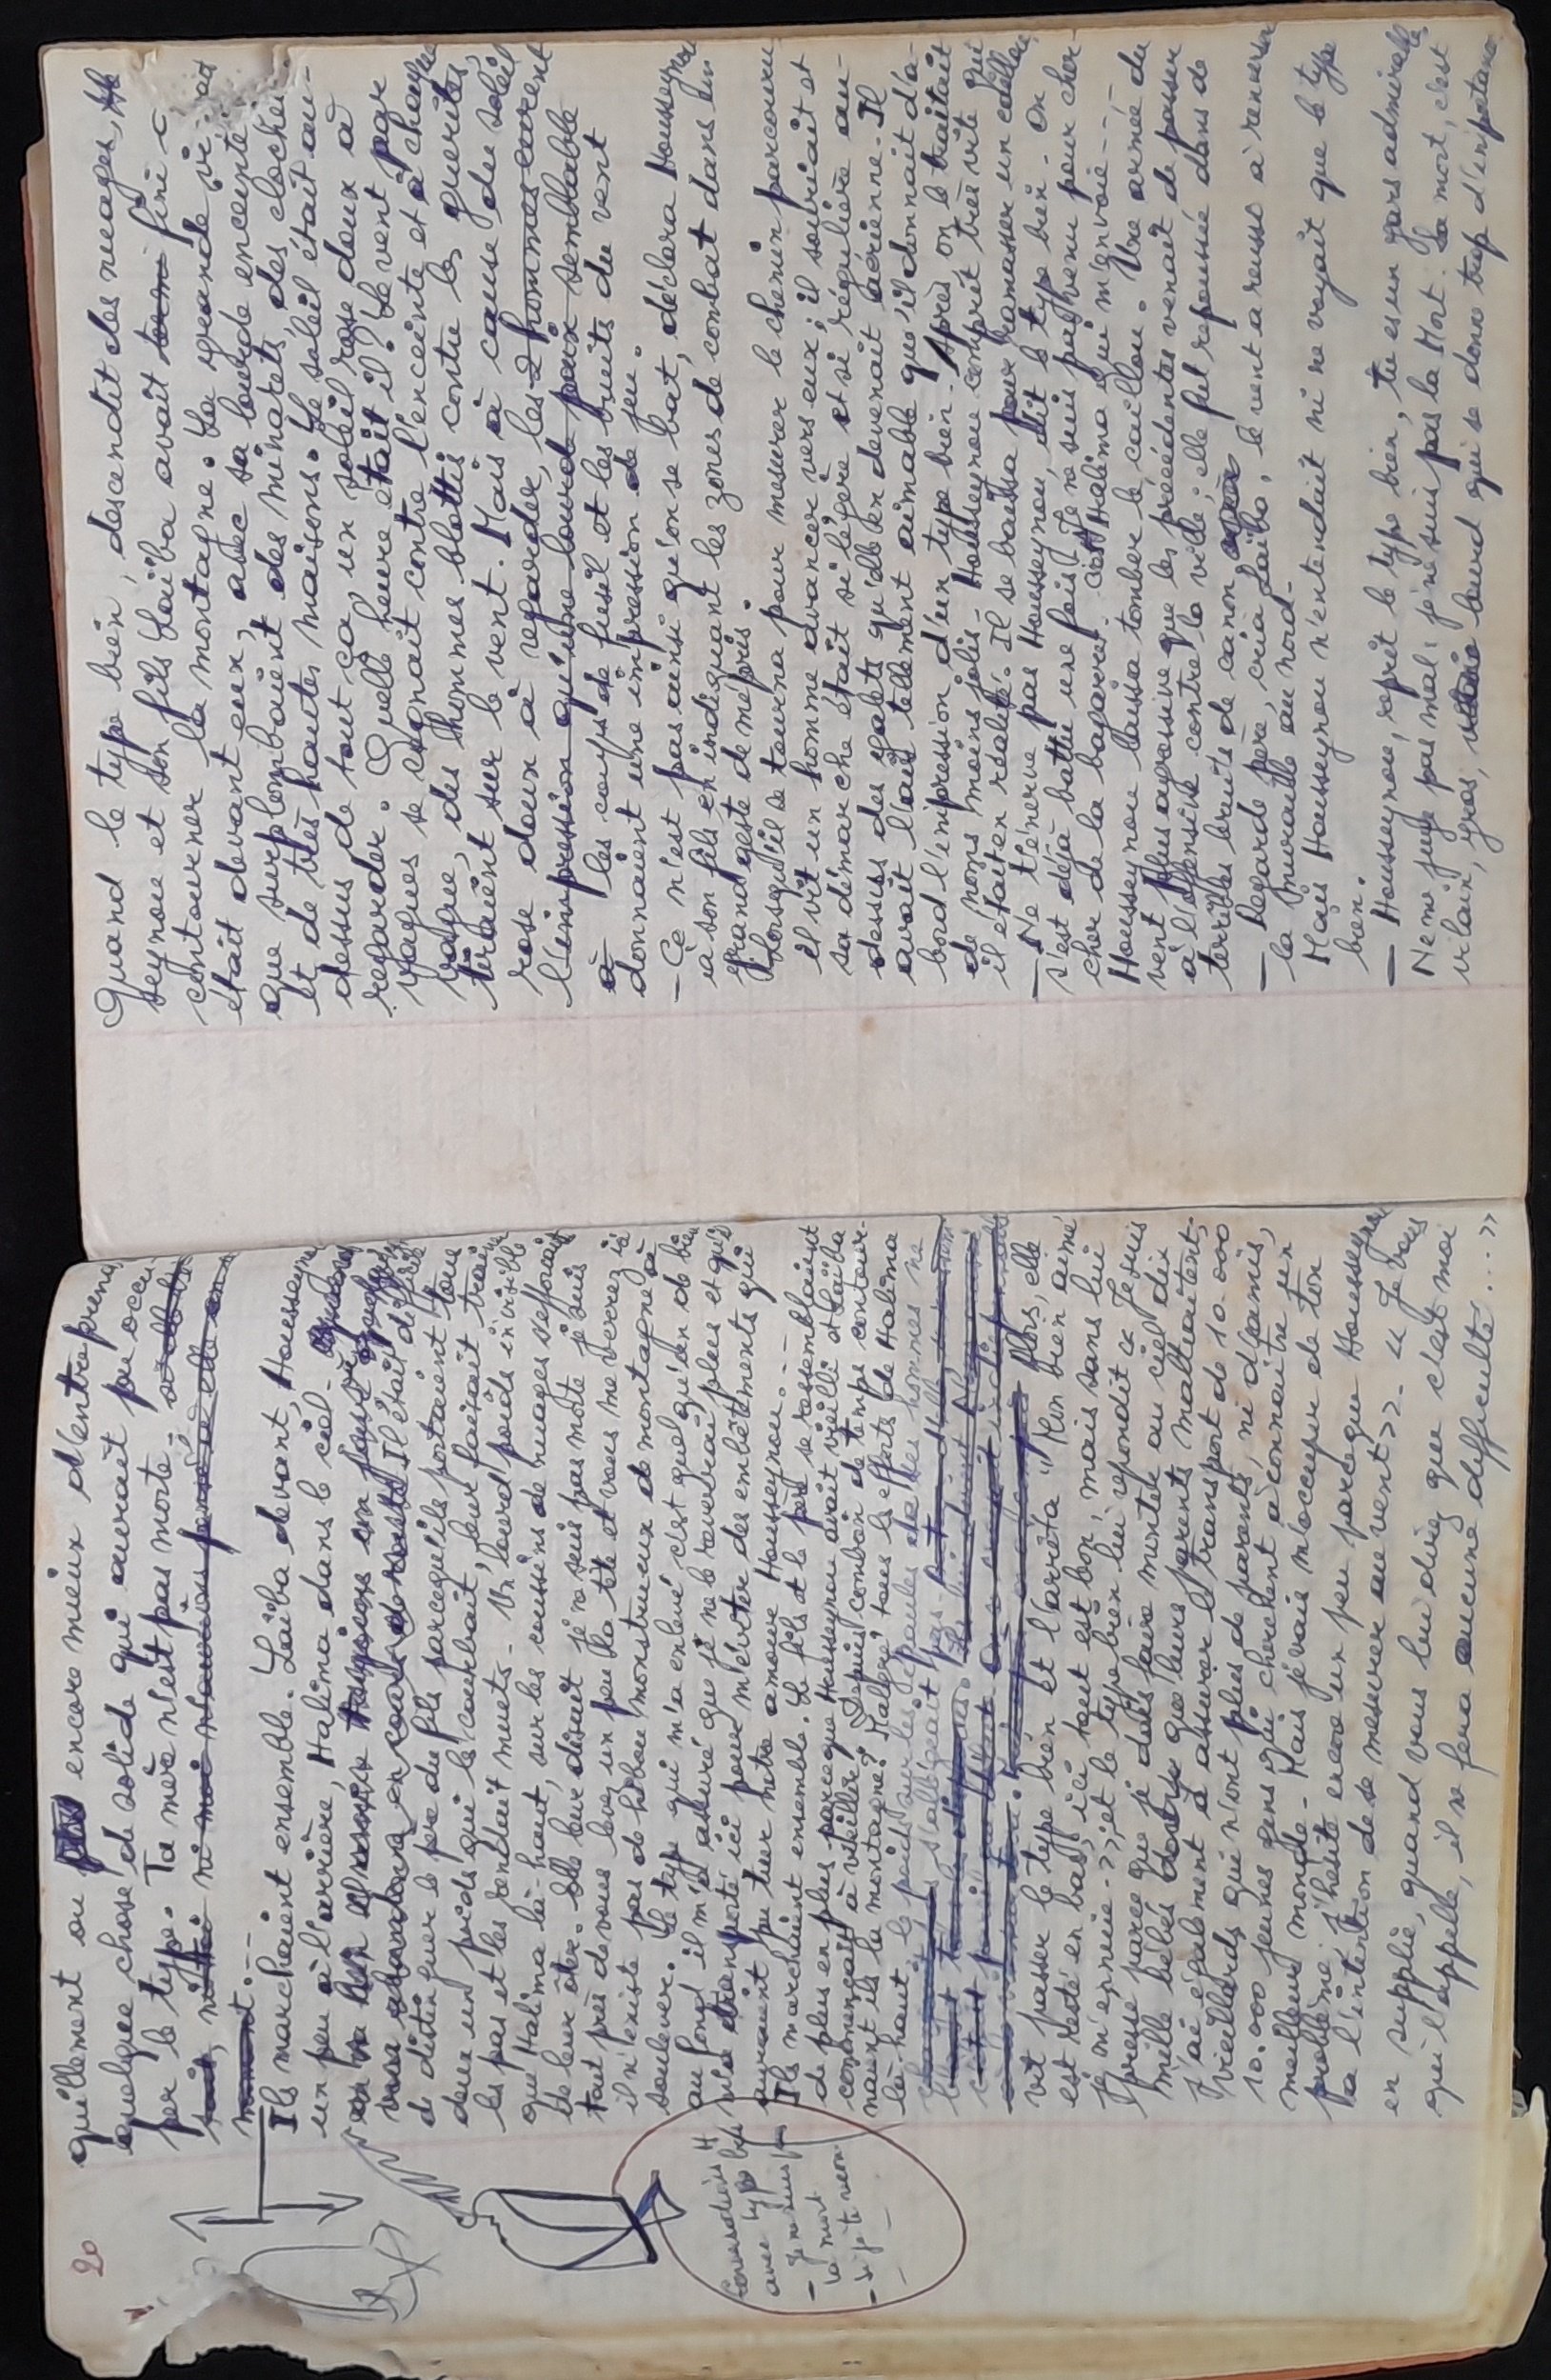 20
quillement ou encore mieux d'entreprend
quelque chose de solide qui aurait pu occu
per le type. Ta mère n'est pas morte.
Ils marchaient ensemble. Laïba devant, Housseyno
un peu à l'arrière, Halima dans le ciel.
Il était difficile
de distinguer le père du fils parcequ'ils portaient tous
deux un poids qui les courbait, leur faisait traîner
les pas et les rendait muets. Un lourd poids invisible
que Halima là-haut, sur les coussins de nuages s'efforçait
de leur ôter. Elle leur disait je ne suis pas morte je suis
tout près de vous levez un peu la tête et vous me verrez ici
il n'existe pas de hibou monstrueux de montagne à
soulever. Le type qui m'a enlevé c'est quelqu'un de bien
au fond il m'a assuré que je ne le reverrai plus et qu'il
m'a transporté ici pour m'éviter des embêtements qui
auraient pu tuer notre amour Housseynou...
Ils marchaient ensemble. Le fils et le père se ressemblaient
de plus en plus parceque Housseynou avait vieilli et Laïba
commençait à vieillir. Depuis combien de temps contour-
naient ils la montagne? Malgré tous les efforts de Halima
là-haut, le poids sur les épaules de ses hommes ne
s'allégeait pas.
Alors, elle
vit passer le type bien et l'arrêta "Mon bien aimé
est resté en bas, ici tout est bon, mais sans lui
je m'ennuie.>>, et le type bien lui répondit << Je suis
pressé parce que je dois faire monter au ciel dix
mille bébés que leurs parents maltraitent,
j'ai également à assurer le transport de 10.000
vieillards qui n'ont plus de parents, ni d'amis,
10.000 jeunes gens qui cherchent à connaître un
meilleur monde. Mais je vais m'occuper de ton
problème, j'hésite encore un peu parceque Housseynou
a l'intention de se mesurer au vent>>. << Je vous
en supplie, quand vous lui direz que c'est moi
qui l'appelle, il ne fera aucune difficulté....>>
Conversation H
avec type bien
- Je ne suis pas
la mort
- Si je te
Quand le type bien, descendit des nuages, Ho
seynou et son fils Laïba avait fini
contourner la montagne. La grande
était devant eux, avec sa lourde enceinte
que surplombaient des minarets, des clochers
et de très hautes maisons. Le soleil était au-
dessus de tout ça, un soleil rose doux à
regarder. Quelle heure était il? Le vent par
vagues se cognait contre l'enceinte et à chaque
vague, des hommes blottis contre les guérites,
tiraient sur le vent. Mais à cause du soleil
rose doux à regarder, les 2 hommes eurent
l'impression qu'une lourde paix semblable
à les coups de fusil et les bruits du vent
donnaient une impression de jeu.
- Ce n'est pas ainsi qu'on se bat, déclara Housseynou
à son fils en indiquant les zones de combat dans un
grand geste de mépris.
Lorsqu'il se tourna pour mesurer le chemin parcouru
il vit un homme avancer vers eux; il souriait et
sa démarche était si légère et si régulière au-
dessus des galets qu'elle en devenait aérienne. Il
avait l'air tellement aimable qu'il donnait d'a-
bord l'impression d'un type bien. Après, on le traitait
de noms moins jolis. Housseynou comprit très vite qui
il était en réalité. Il se baissa pour ramasser un caillou
- Ne t'énerve pas Housseynou, dit le type bien. On
s'est déjà battu une fois. Je ne suis pas venu pour cher-
cher de la bagarre. C'est Halima qui m'envoie...
Housseynou laissa tomber le caillou. Une armée de
vent plus agressive que les précédentes venait de passer
à l'offensive contre la ville; elle fut repoussée dans de
terribles bruits de canon.
- Regarde père, cria Laïba, le vent a réussi à renverser
la muraille au nord.
Mais Housseynou n'entendait ni ne voyait que le type
bien.
- Housseynou, reprit le type bien, tu es un gars admirable
Ne me juge pas mal: je ne suis pas la Mort. La mort, c'est
vilain, gros, lourd qui se donne trop d'importance